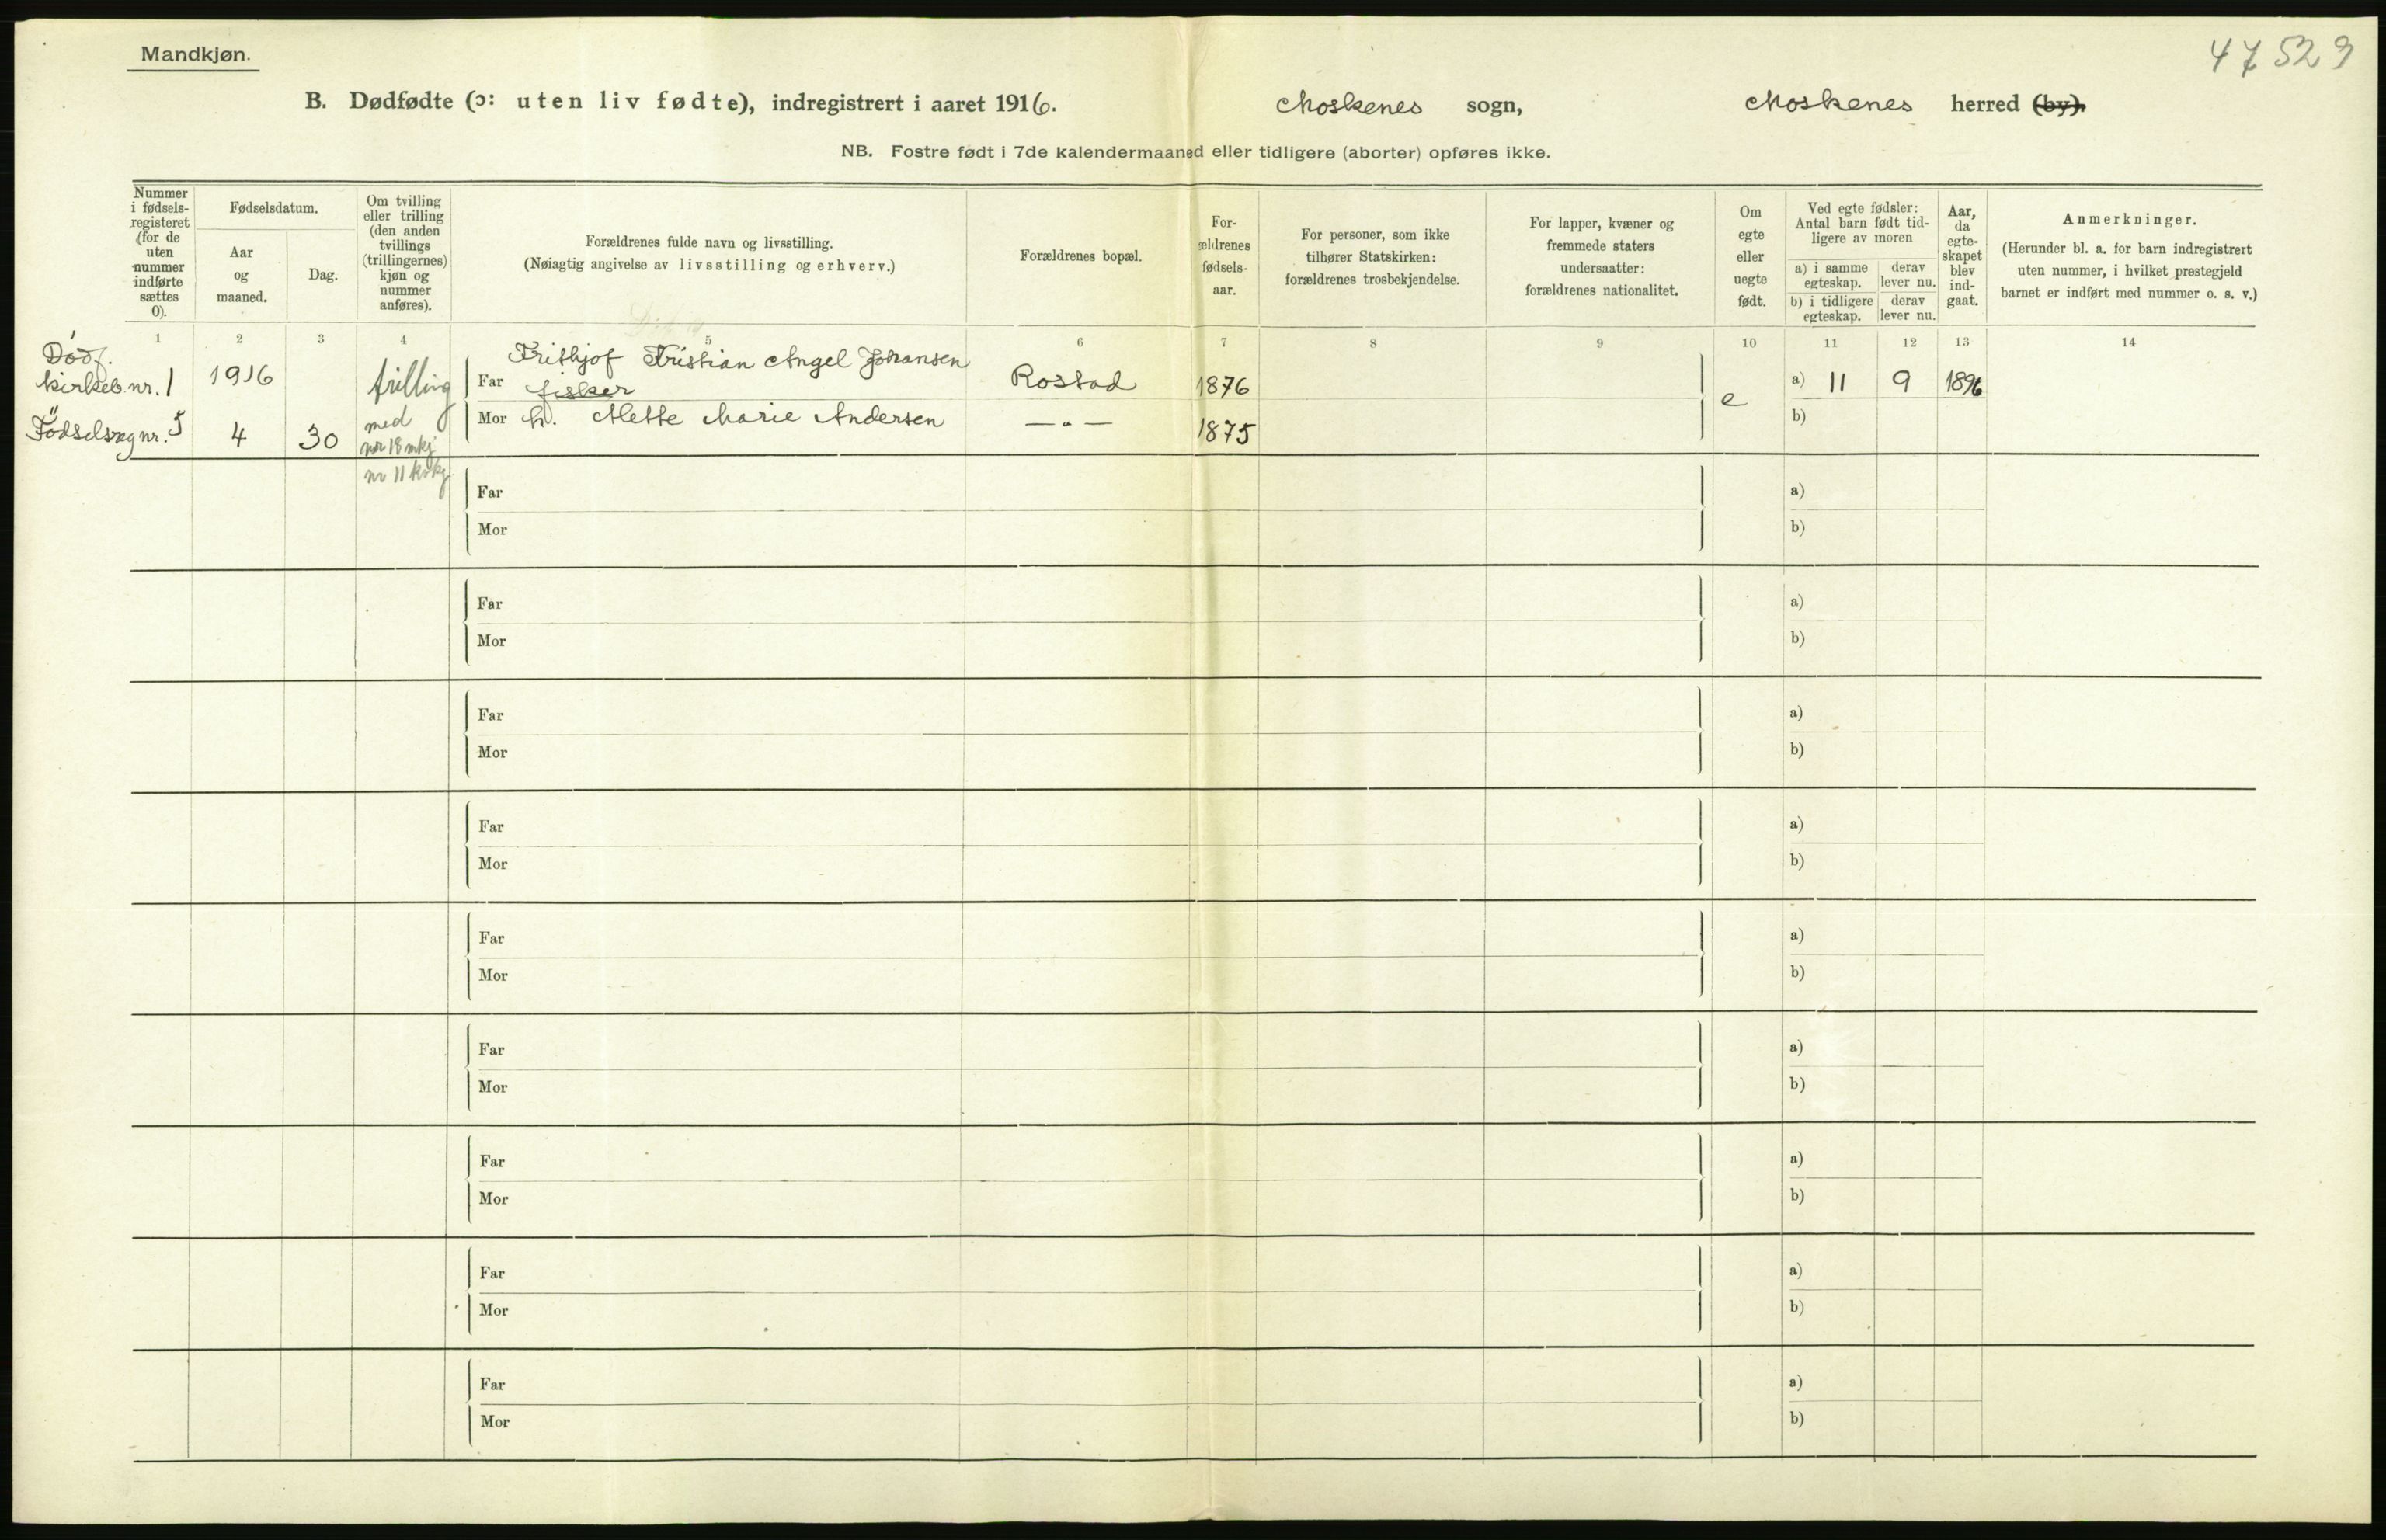 Mandkjøn.
47 529
B. Dødfødte (ɔ: uten liv fødte), indregistrert i aaret 1916. Moskenes sogn, Moskenes herred (by).
NB. Fostre født i 7de kalendermaaned eller tidligere (aborter) opføres ikke.
Nummer i fødsels-registeret (for de uten nummer indførte sættes 0).
Fødselsdatum.
Aar og maaned.
Dag.
Om tvilling eller trilling (den anden tvillings (trillingernes) kjøn og nummer anføres).
Forældrenes fulde navn og livsstilling.
(Nøiagtig angivelse av livsstilling og erhverv.)
Forældrenes bopæl.
For-ældrenes fødsels-aar.
For personer, som ikke tilhører Statskirken: forældrenes trosbekjendelse.
For lapper, kvæner og fremmede staters undersaatter: forældrenes nationalitet.
Om egte eller uegte født.
Ved egte fødsler: Antal barn født tid-ligere av moren
a) i samme egteskap. derav lever nu.
b) i tidligere egteskap. derav lever nu.
Aar, da egte-skapet blev ind-gaat.
Anmerkninger.
(Herunder bl. a. for barn indregistrert uten nummer, i hvilket prestegjeld barnet er indført med nummer o. s. v.)
1 2 3 4 5 6 7 8 9 10 11 12 13 14
Dødf. kirkeb. nr. 1
Fødselsreg nr. 5
1916
4 30
trilling
med
nr 18 mkj
nr 11 kvkj
Far Frithjof Kristian Angel Johansen
fisker
Rostad 1876
Mor h. Mette Marie Andersen — " — 1875
e
a) 11 9 1896
b)
Far a)
Mor b)
Far a)
Mor b)
Far a)
Mor b)
Far a)
Mor b)
Far a)
Mor b)
Far a)
Mor b)
Far a)
Mor b)
Far a)
Mor b)
Far a)
Mor b)